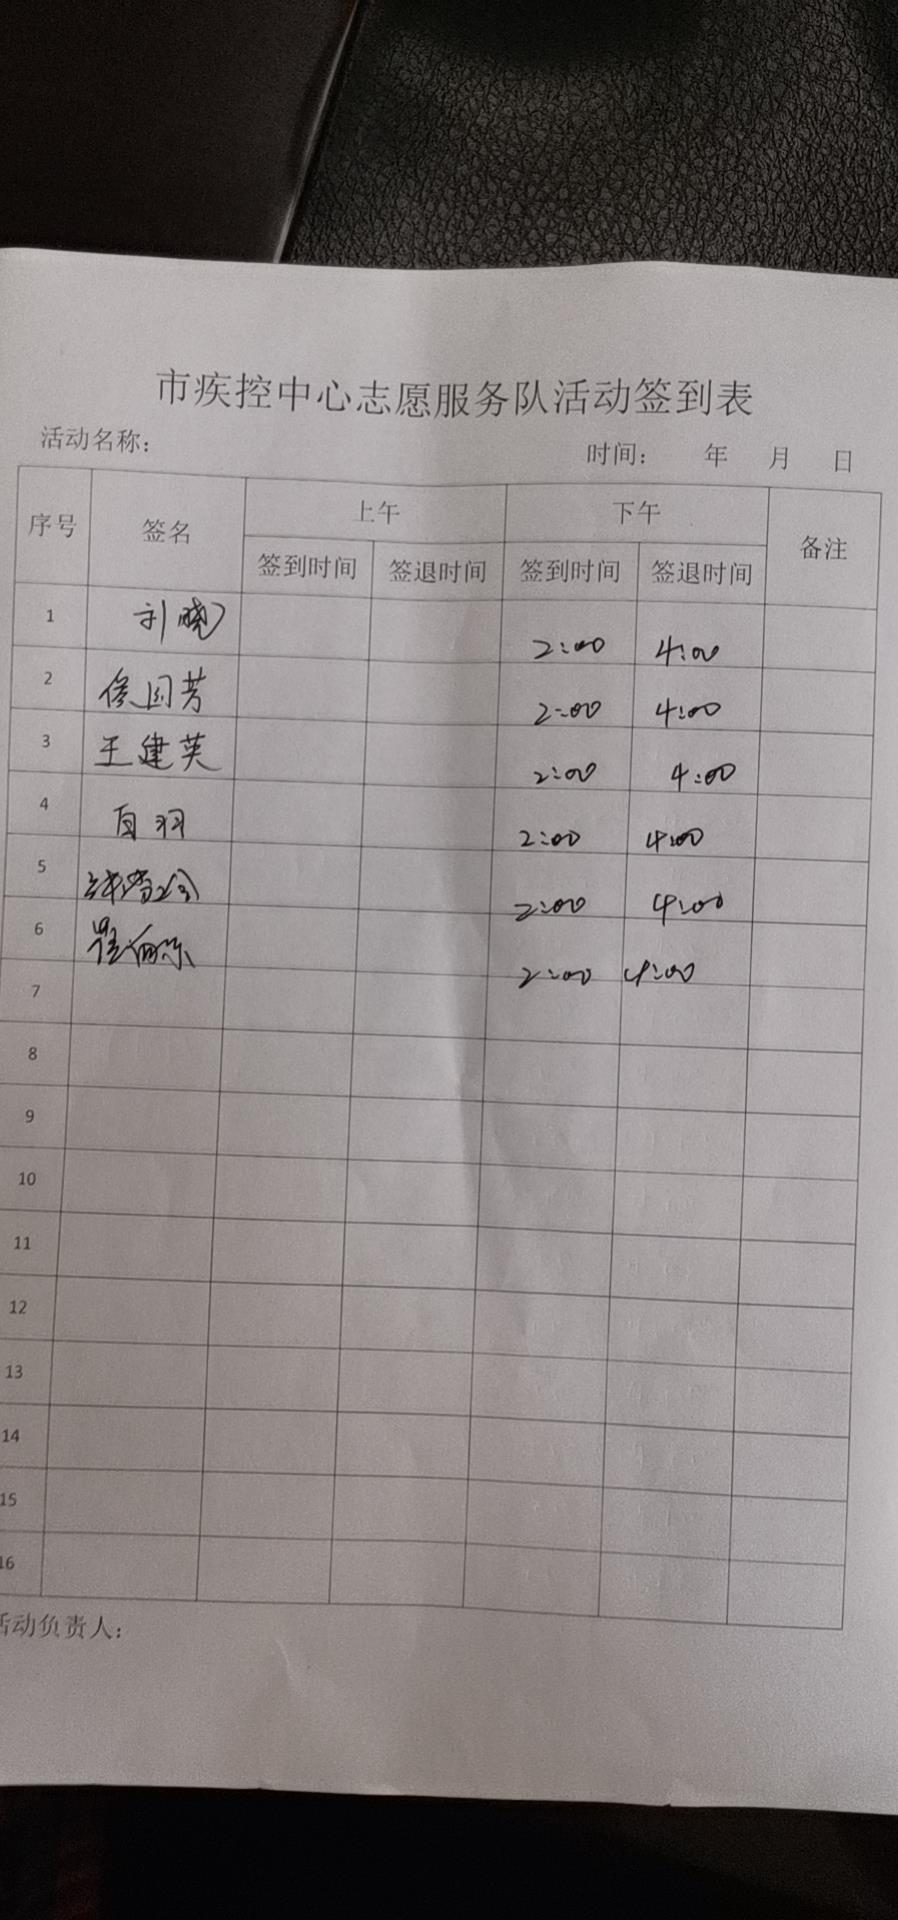 市疾控中心志愿服务队活动签到表
活动名称： 时间： 年 月 日
序号 签名 上午 下午 备注
签到时间 签退时间 签到时间 签退时间
1 刘晓 2:00 4:00
2 侯国芳 2:00 4:00
3 王建英 2:00 4:00
4 白羽 2:00 4:00
5 2:00 4:00
6 2:00 4:00
7
8
9
10
11
12
13
14
15
16
活动负责人：